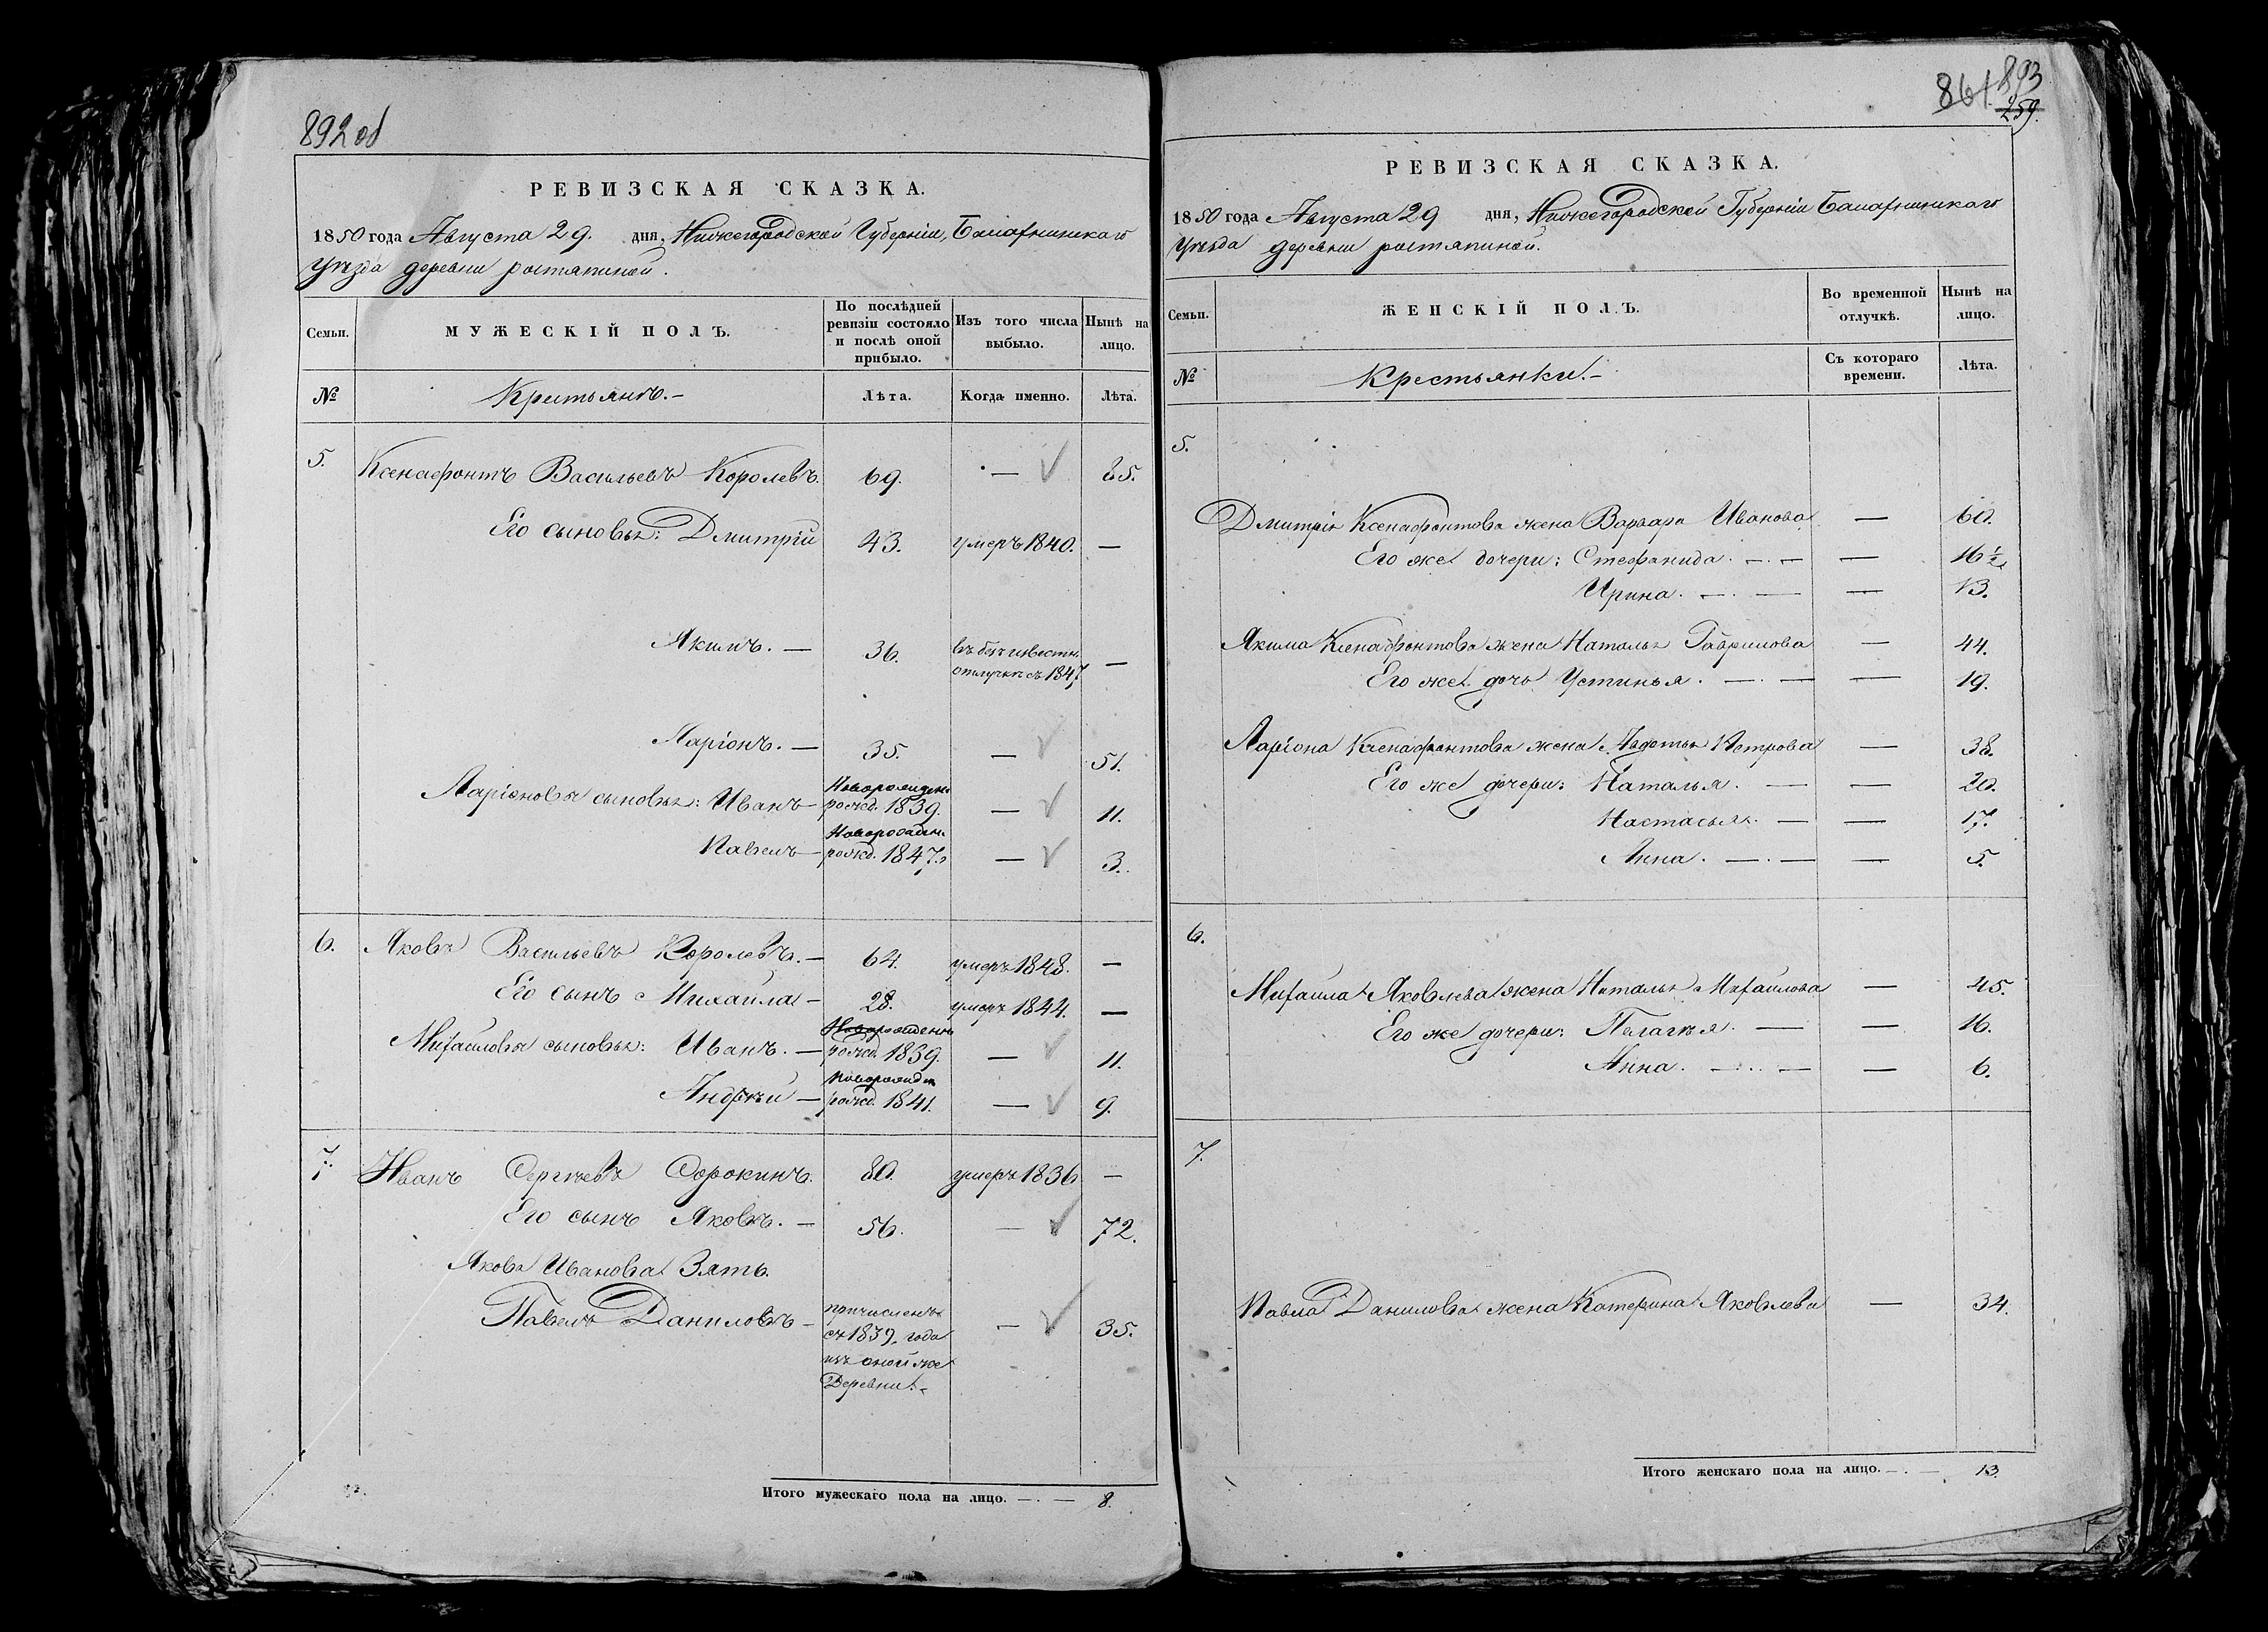 892 об
РЕВИЗСКАЯ СКАЗКА.
1850 года Августа 29. дня, Нижегородской Губерніи, Балахнинскаго
Уѣзда деревни растяпиной.
Семьи.
МУЖЕСКІЙ ПОЛЪ.
По послѣдней ревизіи состояло и послѣ оной прибыло.
Изъ того числа выбыло.
Нынѣ на лицо.
№ Крестьянъ.- Лѣта. Когда именно. Лѣта.
5. Ксенафонтъ Васильевъ Королевъ. 69. — 85.
Его сыновья: Дмитрій 43. умеръ 1840. —
Якимъ. — 36. въ безъизвестн.
отлучкѣ съ 1847 —
Ларіонъ. — 35. — 51.
Ларіоновы сыновья: Иванъ — Новорожден.
рожд. 1839. — 11.
Павелъ — Новорожден.
рожд. 1847. — 3.
6. Яковъ Васильевъ Королевъ. — 64. умеръ 1848. —
Его сынъ Михаила — 28. умеръ 1844. —
Михаиловы сыновья: Иванъ. — Новорожден
рожд. 1839. — 11.
Андрѣй — Новорожден
рожд. 1841. — 9.
7. Иванъ Сергѣевъ Сорокинъ. 80. умеръ 1836 —
Его сынъ Яковъ. — 56. — 72.
Якова Иванова Зять.
Павелъ Даниловъ — причисленъ
съ 1839, года — 35.
изъ оной же
Деревни.-
Итого мужескаго пола на лицо. — 8.
861 893
259.
РЕВИЗСКАЯ СКАЗКА.
1850 года Августа 29 дня, Нижегородской Губерніи Балахнинскаго
Уѣзда деревни растяпиной.
Семьи.
ЖЕНСКІЙ ПОЛЪ.
Во временной отлучкѣ.
Нынѣ на лицо.
№ Крестьянки.- Съ котораго времени. Лѣта.
5.
Дмитрія Ксенафонтова жена Варвара Иванова — 60.
Его же дочери: Стефанида. — — 16 ½
Ирина. — — 13.
Якима Ксенафонтова жена Наталья Гаврилова — 44.
Его же дочь Устинья. — — 19.
Ларіона Ксенафонтова жена Авдотья Петрова — 38.
Его же дочери: Наталья. — — 20.
Настасья. — — 17.
Анна. — — 5.
6.
Михаила Яковлева жена Наталья Михаилова — 45.
Его же дочери: Пелагѣя. — — 16.
Анна. — — 6.
7.
Павла Данилова жена Катерина Яковлева — 34.
Итого женскаго пола на лицо. — 13.